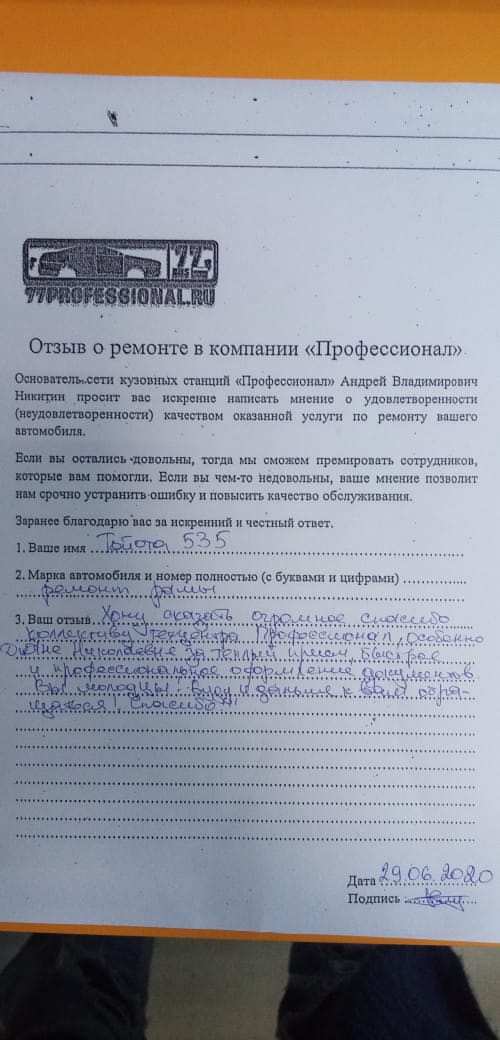 77
RUS
77PROFESSIONAL.RU
Отзыв о ремонте в компании «Профессионал»
Основатель сети кузовных станций «Профессионал» Андрей Владимирович
Никитин просит вас искренне написать мнение о удовлетворенности
(неудовлетворенности) качеством оказанной услуги по ремонту вашего
автомобиля.
Если вы остались довольны, тогда мы сможем премировать сотрудников,
которые вам помогли. Если вы чем-то недовольны, ваше мнение позволит
нам срочно устранить ошибку и повысить качество обслуживания.
Заранее благодарю вас за искренний и честный ответ.
1. Ваше имя Тойота 535
2. Марка автомобиля и номер полностью (с буквами и цифрами)
ремонт рамы
3. Ваш отзыв Хочу сказать огромное спасибо
коллективу техцентра Профессионал, особенно
Диане Николаевне за теплый прием, быстрое
и профессиональное оформление документов.
Вы молодцы! Буду и дальше к вам обра-
щаться! Спасибо!
Дата 29.06.2020
Подпись